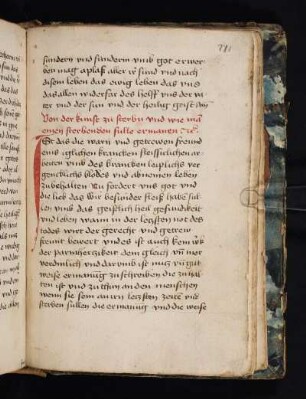 sundern vnd sunderin vmb got erwer
ben mag aplaß aller ir sund vnd nach
disem leben das ewig leben das vns
das allen widerfar des helff vns der va
ter vnd der sun vnd der heilig geist
Von der kunst zu sterben vnd wie man
einen sterbenden sulle ermanen
Seit das die warn vnd getrewen freund
eins iglichen krancken fleissiclichen ar
beiten vmb des krancken leiplichs ver
gencklichs blodes vnd abnemen leben
zubehalten So fordert vns got vnd
die lieb das wir besunder fleiß habe sul
len vmb das geistlich heil gesuntheit
vnd leben wann in der leczsten not des
todes wirt der gerecht vnd getrew
freunt bewert vnd es ist auch kein werck
der parmherczikeit dem gleich vnd
verdinlich vnd darvmb ist nucz vnd gut
weise ermanung zuschreiben die zuhal
ten ist vnd zuthun an den menschen
wenn sie sein an irn leczsten zeite vnd
sterben sullen die ermanung vnd die weise